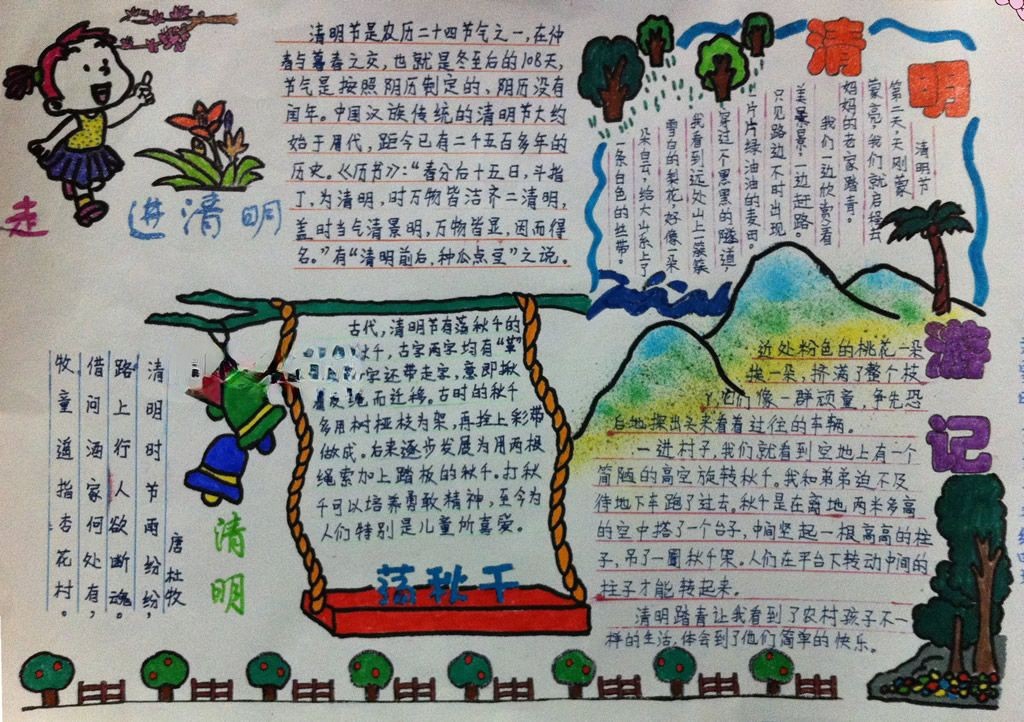 走进清明
清明节是农历二十四节气之一,在仲
春与暮春之交,也就是冬至后的108天,
节气是按照阴历制定的,阴历没有
闰年。中国汉族传统的清明节大约
始于周代,距今已有二千五百多年的
历史。《历节》:“春分后十五日,斗指
丁,为清明,时万物皆洁齐二清明,
盖时当气清景明,万物皆显,因而得
名。”有“清明前后,种瓜点豆”之说。
清明
游记
清明节
第二天,天刚蒙
蒙亮,我们就启程去
妈妈的老家踏青。
我们一边欣赏着
美景景;一边赶路。
只见路边不时出现
片片绿油油的麦田。
穿过一个黑黑的隧道,
我看到远处山上一簇簇
雪白的梨花,好像一朵
朵白云,给大山系上了
一条白色的丝带。
近处粉色的桃花一朵
挨一朵,挤满了整个枝
们像一群顽童,争先恐
后地探出头来看着过往的车辆。
一进村子,我们就看到空地上有一个
简陋的高空旋转秋千。我和弟弟迫不及
待地下车跑了过去。秋千是在离地两米多高
的空中搭了一个台子,中间竖起一根高高的柱
子,吊了一圈秋千架。人们在平台下转动中间的
柱子才能转起来。
清明踏青让我看到了农村孩子不一
样的生活,体会到了他们简单的快乐。
古代,清明节有荡秋千的
秋千,古字两字均有“革”
字还带走字,意即揪
皮绳而迁移。古时的秋千
多用树桠枝为架,再拴上彩带
做成。后来逐步发展为用两根
绳索加上踏板的秋千。打秋
千可以培养勇敢精神,至今为
人们特别是儿童所喜爱。
荡秋千
清明
唐 杜牧
清明时节雨纷纷,
路上行人欲断魂。
借问酒家何处有,
牧童遥指杏花村。